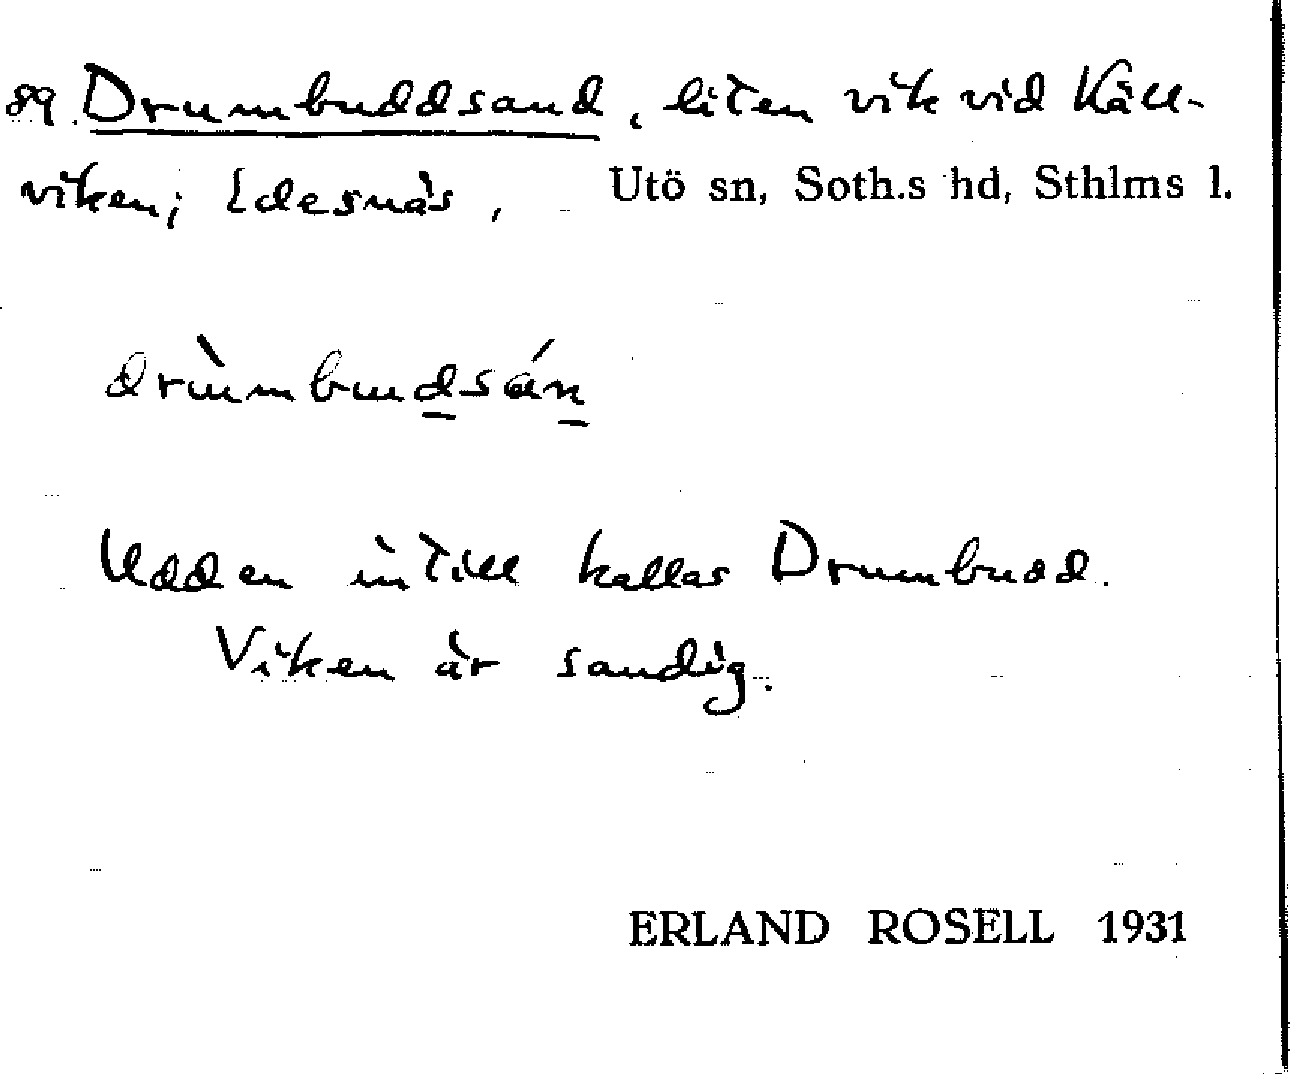 89. Drumbuddsand, liten vik vid Käll-
viken; Edesnäs, Utö sn, Soth.s hd, Sthlms l.
drùmbudsán
Udden intill kallas Drumbudd.
Viken är sandig.
ERLAND ROSELL 1931